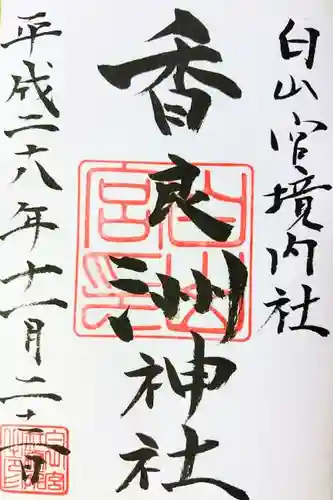 白山宮境内社
香良洲神社
平成二六年十一月二十二日